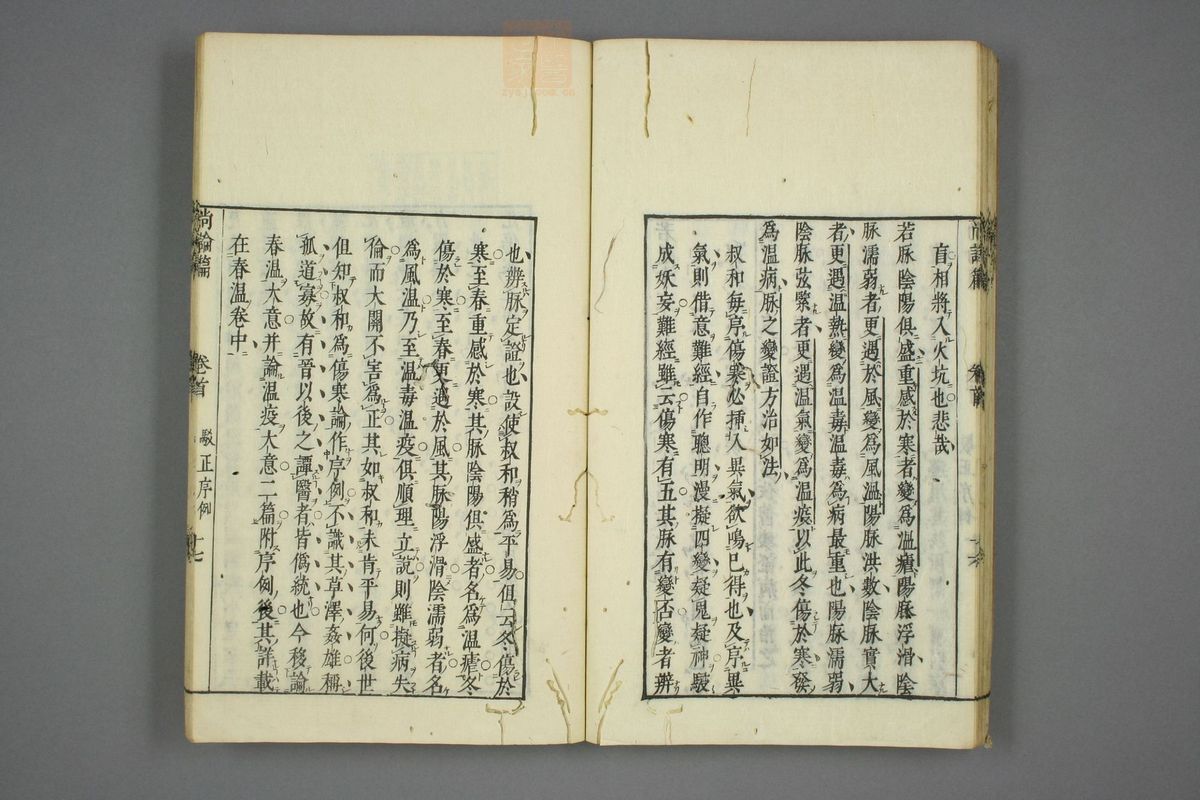 盲相將入火坑也悲哉
若脉陰陽俱盛重感於寒者變爲溫瘧陽脉浮滑陰
脉濡弱者更遇於風變爲風溫陽脉洪數陰脉實大
者更遇溫熱變爲溫毒溫毒爲病最重也陽脉濡弱
陰脉弦緊者更遇溫氣變爲溫疫以此冬傷於寒發
爲溫病脉之變證方治如法
叔和每序傷寒必揷入異氣欲鳴已得也及序異
氣則借意難經自作聰明漫擬四變疑鬼疑神駸
成妖妄難經雖云傷寒有五其脉有變否變者辨
也辨脉定證也設使叔和稍爲平易但云冬傷於
寒至春重感於寒其脉陰陽俱盛者名爲溫瘧冬
傷於寒至春更遇於風其脉陽浮滑陰濡弱者名
爲風溫乃至溫毒溫疫俱順理立說則雖擬病失
倫而大關不害爲正其如叔和未肯平易何後世
但知叔和爲傷寒論作序例不識其草澤姦雄稱
孤道寡故有晉以後之譚醫者皆僞統也今移論
春溫大意并論溫疫大意二篇附序例後其詳載
在春溫卷中
尚論篇
卷首
駁正序例
十七
尚論篇
卷首